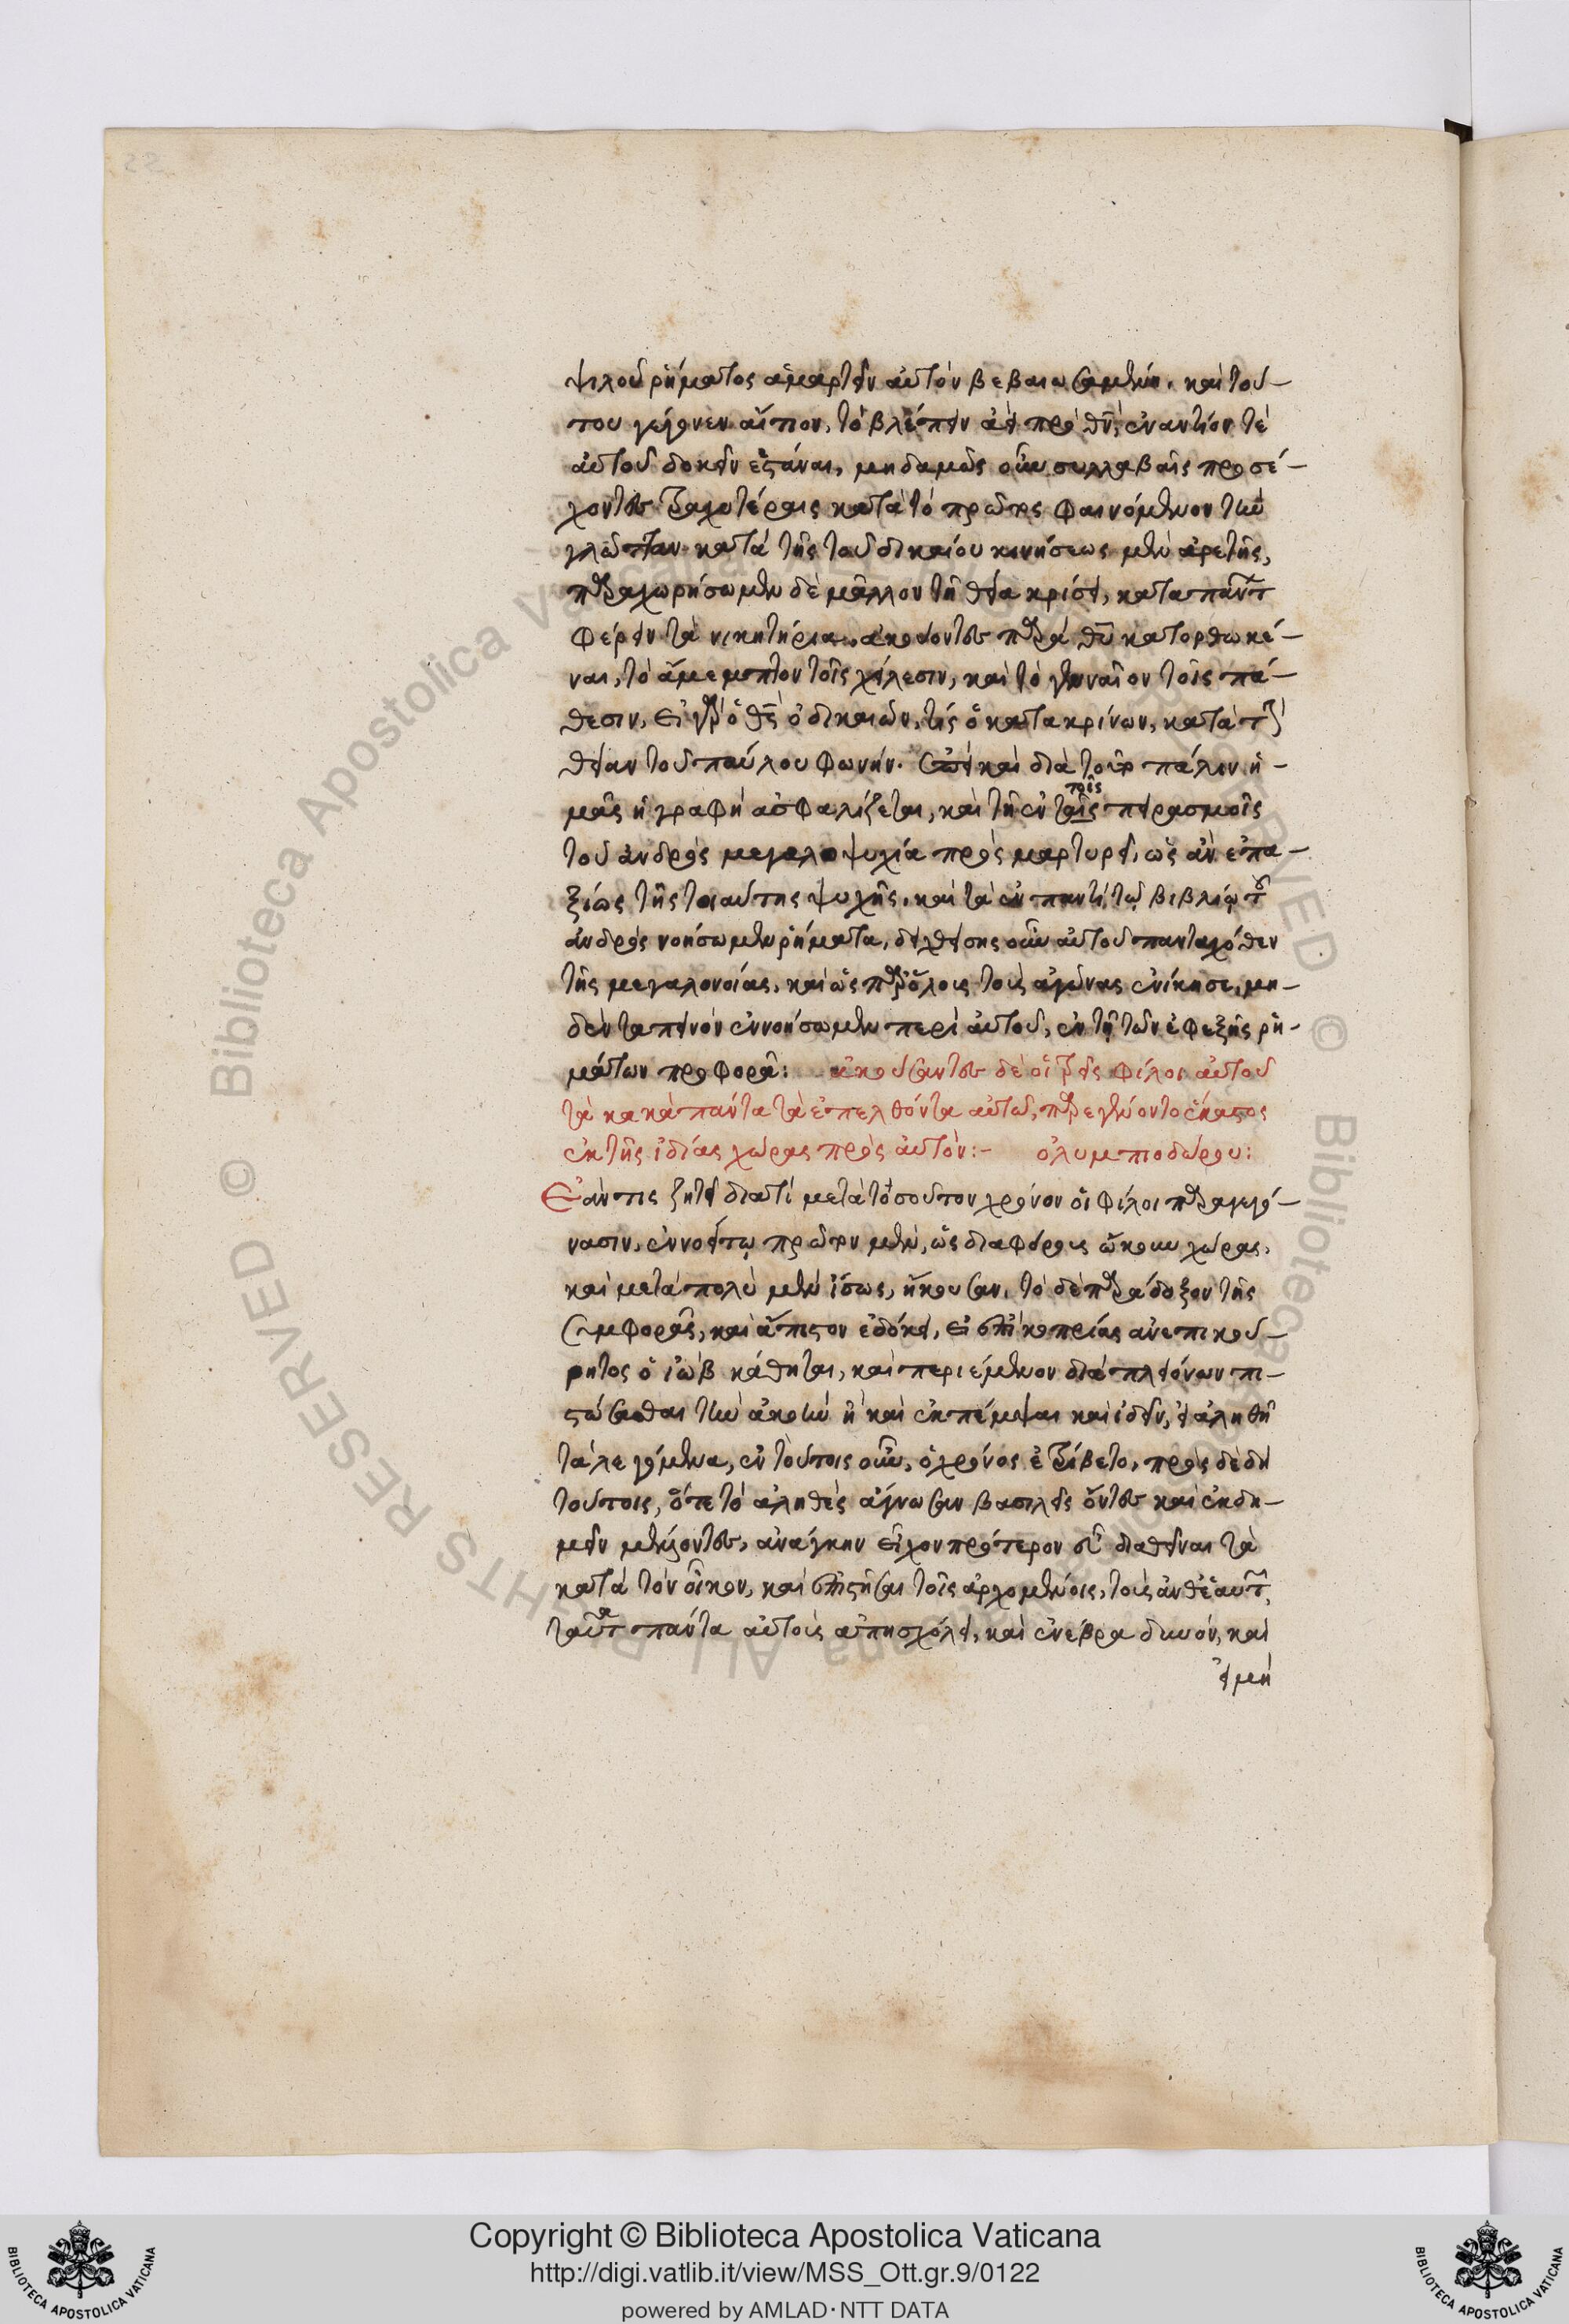 22
ψιλοῦ ῥήματος ἁμαρτεῖν αὐτὸν βεβαιωσαμένην. καὶ τού-
του γέγονεν αἴτιον, τὸ βλέπειν ἀεὶ πρὸ θν, ἐναντίον τὲ
αὐτοῦ δοκεῖν ἑστάναι, μηδαμῶς οὖν συλλαβαῖς προσέ-
χοντες ταχυτέραις κατὰ τὸ πρῶτως φαινόμενον τὴν
γλῶτταν κατὰ τῆς τοῦ δικαίου κινήσεως μὲν ἀρετῆς,
παραχωρήσωμεν δὲ μᾶλλον τῇ θεία κρίσει, κατὰ πάντ
φέρειν τὰ νικητήρια, ἀκούοντες παρὰ θυ κατορθωκέ-
ναι, τὸ ἄμεμπτον τοῖς χείλεσιν, καὶ τὸ γενναῖον τοῖς πά-
θεσιν, εἰ γὰρ ὁ θς ὁ δικαιῶν, τίς ὁ κατακρίνων, κατὰ τὴν
θείαν τοῦ παύλου φωνήν. ὥστε καὶ διὰ τοῦτο πάλιν ἡ-
μᾶς ἡ γραφὴ ἀσφαλίζεται, καὶ τῇ ἐν ταῖς πειρασμοῖς
τοῖς
τοῦ ἀνδρὸς μεγαλοψυχία προσμαρτυρεῖ, ὡς ἂν ἐπα-
ξίως τῆς τοιαύτης ψυχῆς, καὶ τὰ ἐν παντὶ τῷ βιβλίῳ τοῦ
ἀνδρὸς νοήσωμεν ῥήματα, δειχθείσης οὖν αὐτοῦ πανταχόθεν
τῆς μεγαλονοίας, καὶ ὡς παρ' ὅλους τοὺς ἀγῶνας ἐνίκησε, μη-
δὲν ταπεινὸν ἐννοήσωμεν περὶ αὐτοῦ, ἐν τῇ τῶν ἐφεξῆς ῥη-
μάτων προφορᾶ: ἀκούσαντες δὲ οἱ τρεῖς φίλοι αὐτοῦ
τὰ κακὰ πάντα τὰ ἐπελθόντα αὐτῶ, παρεγένοντο ἕκαστος
ἐκ τῆς ἰδίας χώρας πρὸς αὐτόν:- ὀλυμπιοδώρου:
Ἐάν τις ζητεῖ διατί μετὰ τοσοῦτον χρόνον οἱ φίλοι παραγεγό-
νασιν, ἐννοείτω πρῶτον μὲν, ὡς διαφόρους ᾤκουν χώρας,
καὶ μετὰ πολὺ μὲν ἴσως, ἤκουσαν, τὸ δὲ παράδοξον τῆς
συμφορᾶς, καὶ ἄπιστον ἐδόκει, εἰ ἐπὶ κοπρίας ἀνεπικού-
ρητος ὁ ἰὼβ κάθηται, καὶ περιέμενον διὰ πλειόνων πι-
στώσασθαι τὴν ἀκοὴν ἢ καὶ ἐκπέμψαι καὶ ἰδεῖν, εἰ ἀληθῆ
τὰ λεγόμενα, ἐν τούτοις οὖν, ὁ χρόνος ἐτρίβετο, πρὸς δὲ δὴ
τούτοις, ὅτε τὸ ἀληθὲς ἀέγνωσαν βασιλεῖς ὄντες καὶ ἐκδη-
μεῖν μέλλοντες, ἀνάγκην εἶχον πρότερον εὖ διαθεῖναι τὰ
κατὰ τὸν οἶκον, καὶ ἐπιστῆσαι τοῖς ἀρχομένοις, τοὺς ἀνθ' ἑαυτῶν,
ταῦτα πάντα αὐτοὺς ἀπησχόλει, καὶ ἐνέβραδυνον, καὶ
εἰ μὴ
Copyright © Biblioteca Apostolica Vaticana
http://digi.vatlib.it/view/MSS_Ott.gr.9/0122
powered by AMLAD·NTT DATA